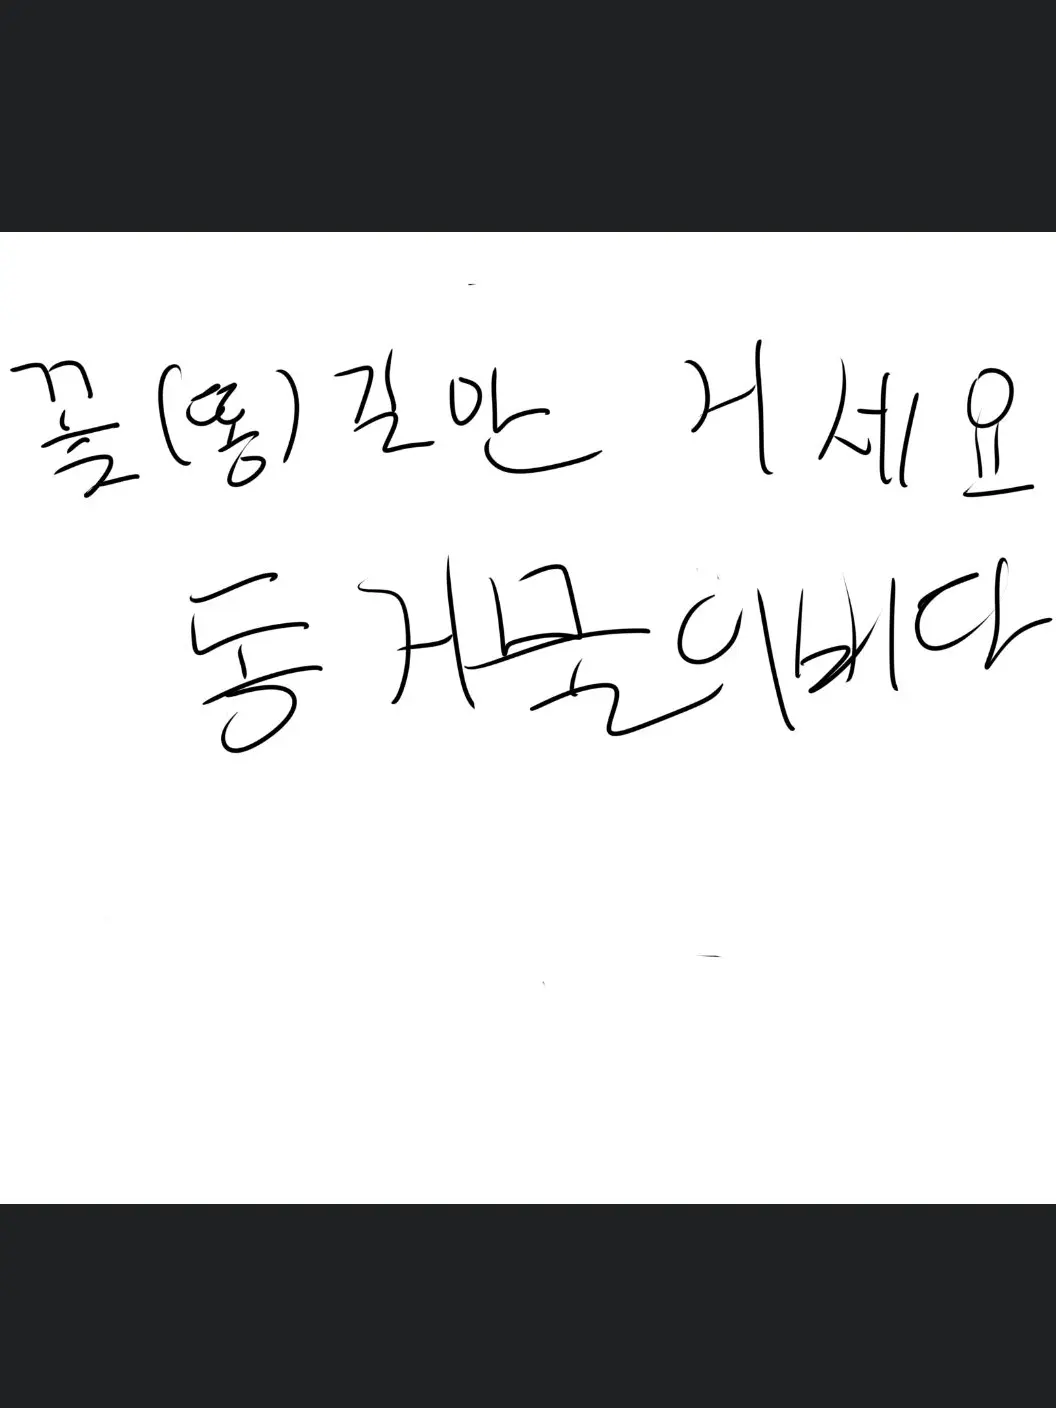 꽃(똥)길만 거세요
동거물이버다